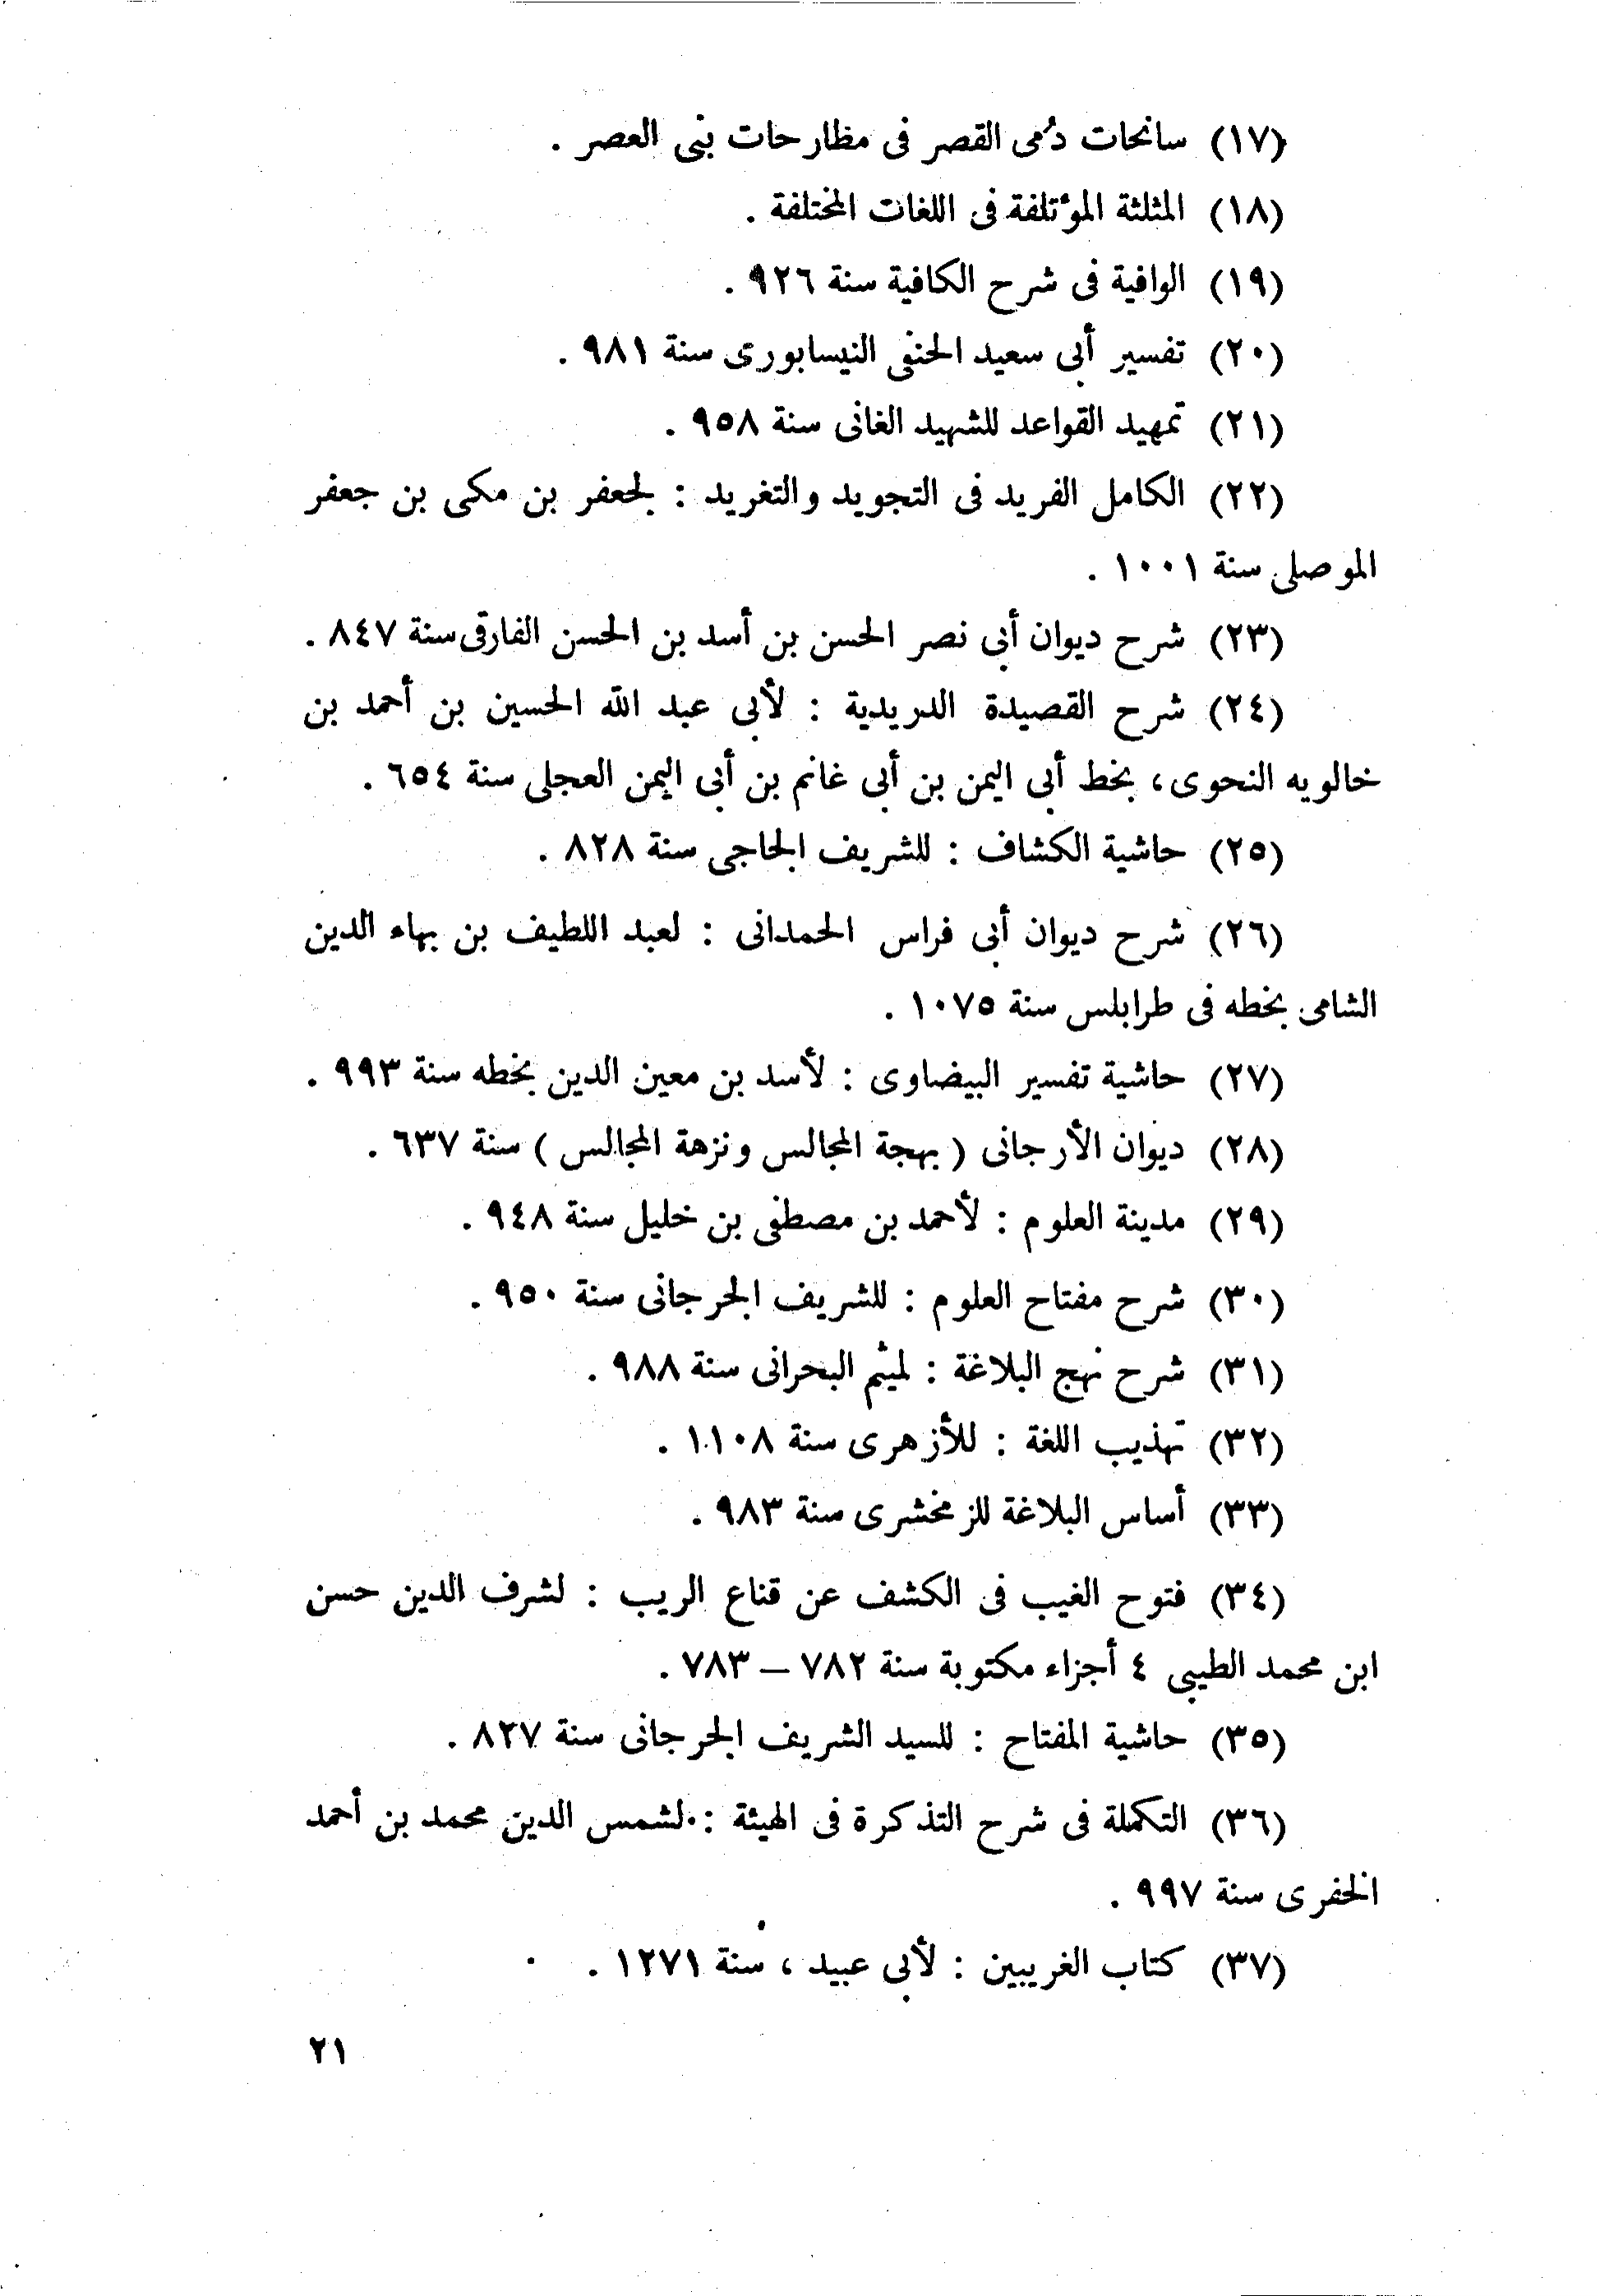 (١٧) سانحات دُمى القصر فى مظارحات بنى العصر .
(١٨) المثلثة المؤتلفة فى اللغات المختلفة .
(١٩) الوافية فى شرح الكافية سنة ٩٢٦ .
(٢٠) تفسير أبى سعيد الحنفى النيسابورى سنة ٩٨١ .
(٢١) تمهيد القواعد للشهيد الغانى سنة ٩٥٨ .
(٢٢) الكامل الفريد فى التجويد والتغريد : لجعفر بن مكى بن جعفر
الموصلى سنة ١٠٠١ .
(٢٣) شرح ديوان أبى نصر الحسن بن أسد بن الحسن الفارقى سنة ٨٤٧ .
(٢٤) شرح القصيدة الدريدية : لأبى عبد الله الحسين بن أحمد بن
خالويه النحوى ، بخط أبى اليمن بن أبى غانم بن أبى اليمن العجلى سنة ٦٥٤ .
(٢٥) حاشية الكشاف : للشريف الحاجى سنة ٨٢٨ .
(٢٦) شرح ديوان أبى فراس الحمدانى : لعبد اللطيف بن بهاء الدين
الشامى بخطه فى طرابلس سنة ١٠٧٥ .
(٢٧) حاشية تفسير البيضاوى : لأسد بن معين الدين بخطه سنة ٩٩٣ .
(٢٨) ديوان الأرجانى ( بهجة المجالس ونزهة المجالس ) سنة ٦٣٧ .
(٢٩) مدينة العلوم : لأحمد بن مصطفى بن خليل سنة ٩٤٨ .
(٣٠) شرح مفتاح العلوم : للشريف الجرجانى سنة ٩٥٠ .
(٣١) شرح نهج البلاغة : لميثم البحرانى سنة ٩٨٨ .
(٣٢) تهذيب اللغة : للأزهرى سنة ١١٠٨ .
(٣٣) أساس البلاغة للزمخشرى سنة ٩٨٣ .
(٣٤) فتوح الغيب فى الكشف عن قناع الريب : لشرف الدين حسن
ابن محمد الطيبى ٤ أجزاء مكتوبة سنة ٧٨٢ – ٧٨٣ .
(٣٥) حاشية المفتاح : للسيد الشريف الجرجانى سنة ٨٢٧ .
(٣٦) التكملة فى شرح التذكرة فى الهيئة : لشمس الدين محمد بن أحمد
الخفرى سنة ٩٩٧ .
(٣٧) كتاب الغريبين : لأبى عبيد ، سنة ١٢٧١ .
٢١